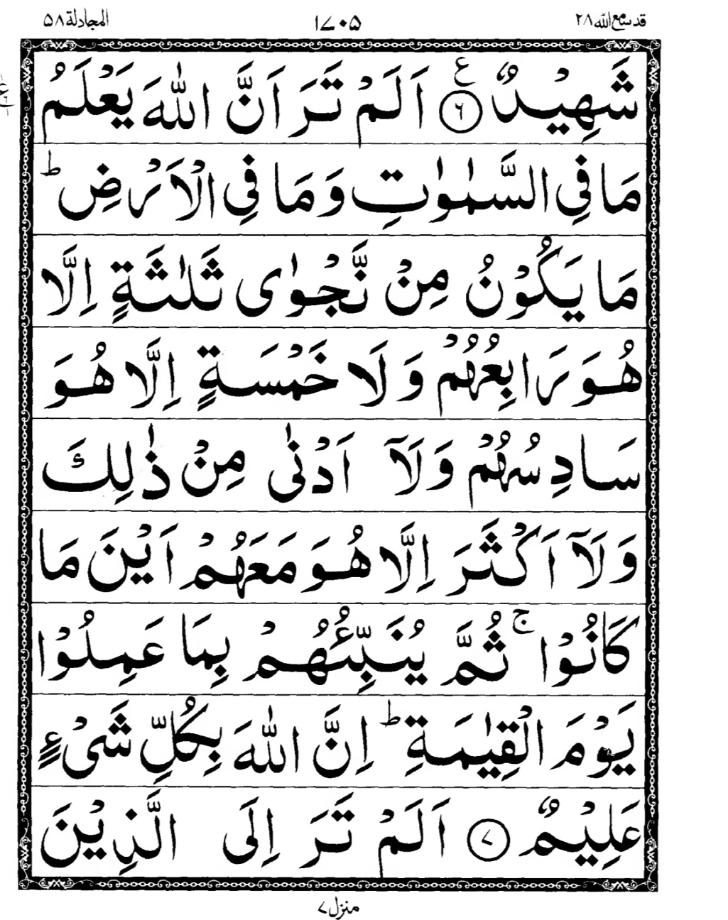 المجادلة ٥٨ ١٧٠٥ قد سمع الله ٢٨
شَهِيْدٌ ۝٦ ع اَلَمْ تَرَ اَنَّ اللّٰهَ يَعْلَمُ
مَا فِي السَّمٰوٰتِ وَمَا فِي الْاَرْضِ ؕ
مَا يَكُوْنُ مِنْ نَّجْوٰى ثَلٰثَةٍ اِلَّا
هُوَ رَابِعُهُمْ وَلَا خَمْسَةٍ اِلَّا هُوَ
سَادِسُهُمْ وَلَاۤ اَدْنٰى مِنْ ذٰلِكَ
وَلَاۤ اَكْثَرَ اِلَّا هُوَ مَعَهُمْ اَيْنَ مَا
كَانُوْا ۚ ثُمَّ يُنَبِّئُهُمْ بِمَا عَمِلُوْا
يَوْمَ الْقِيٰمَةِ ؕ اِنَّ اللّٰهَ بِكُلِّ شَيْءٍ
عَلِيْمٌ ۝٧ اَلَمْ تَرَ اِلَى الَّذِيْنَ
منزل ٧